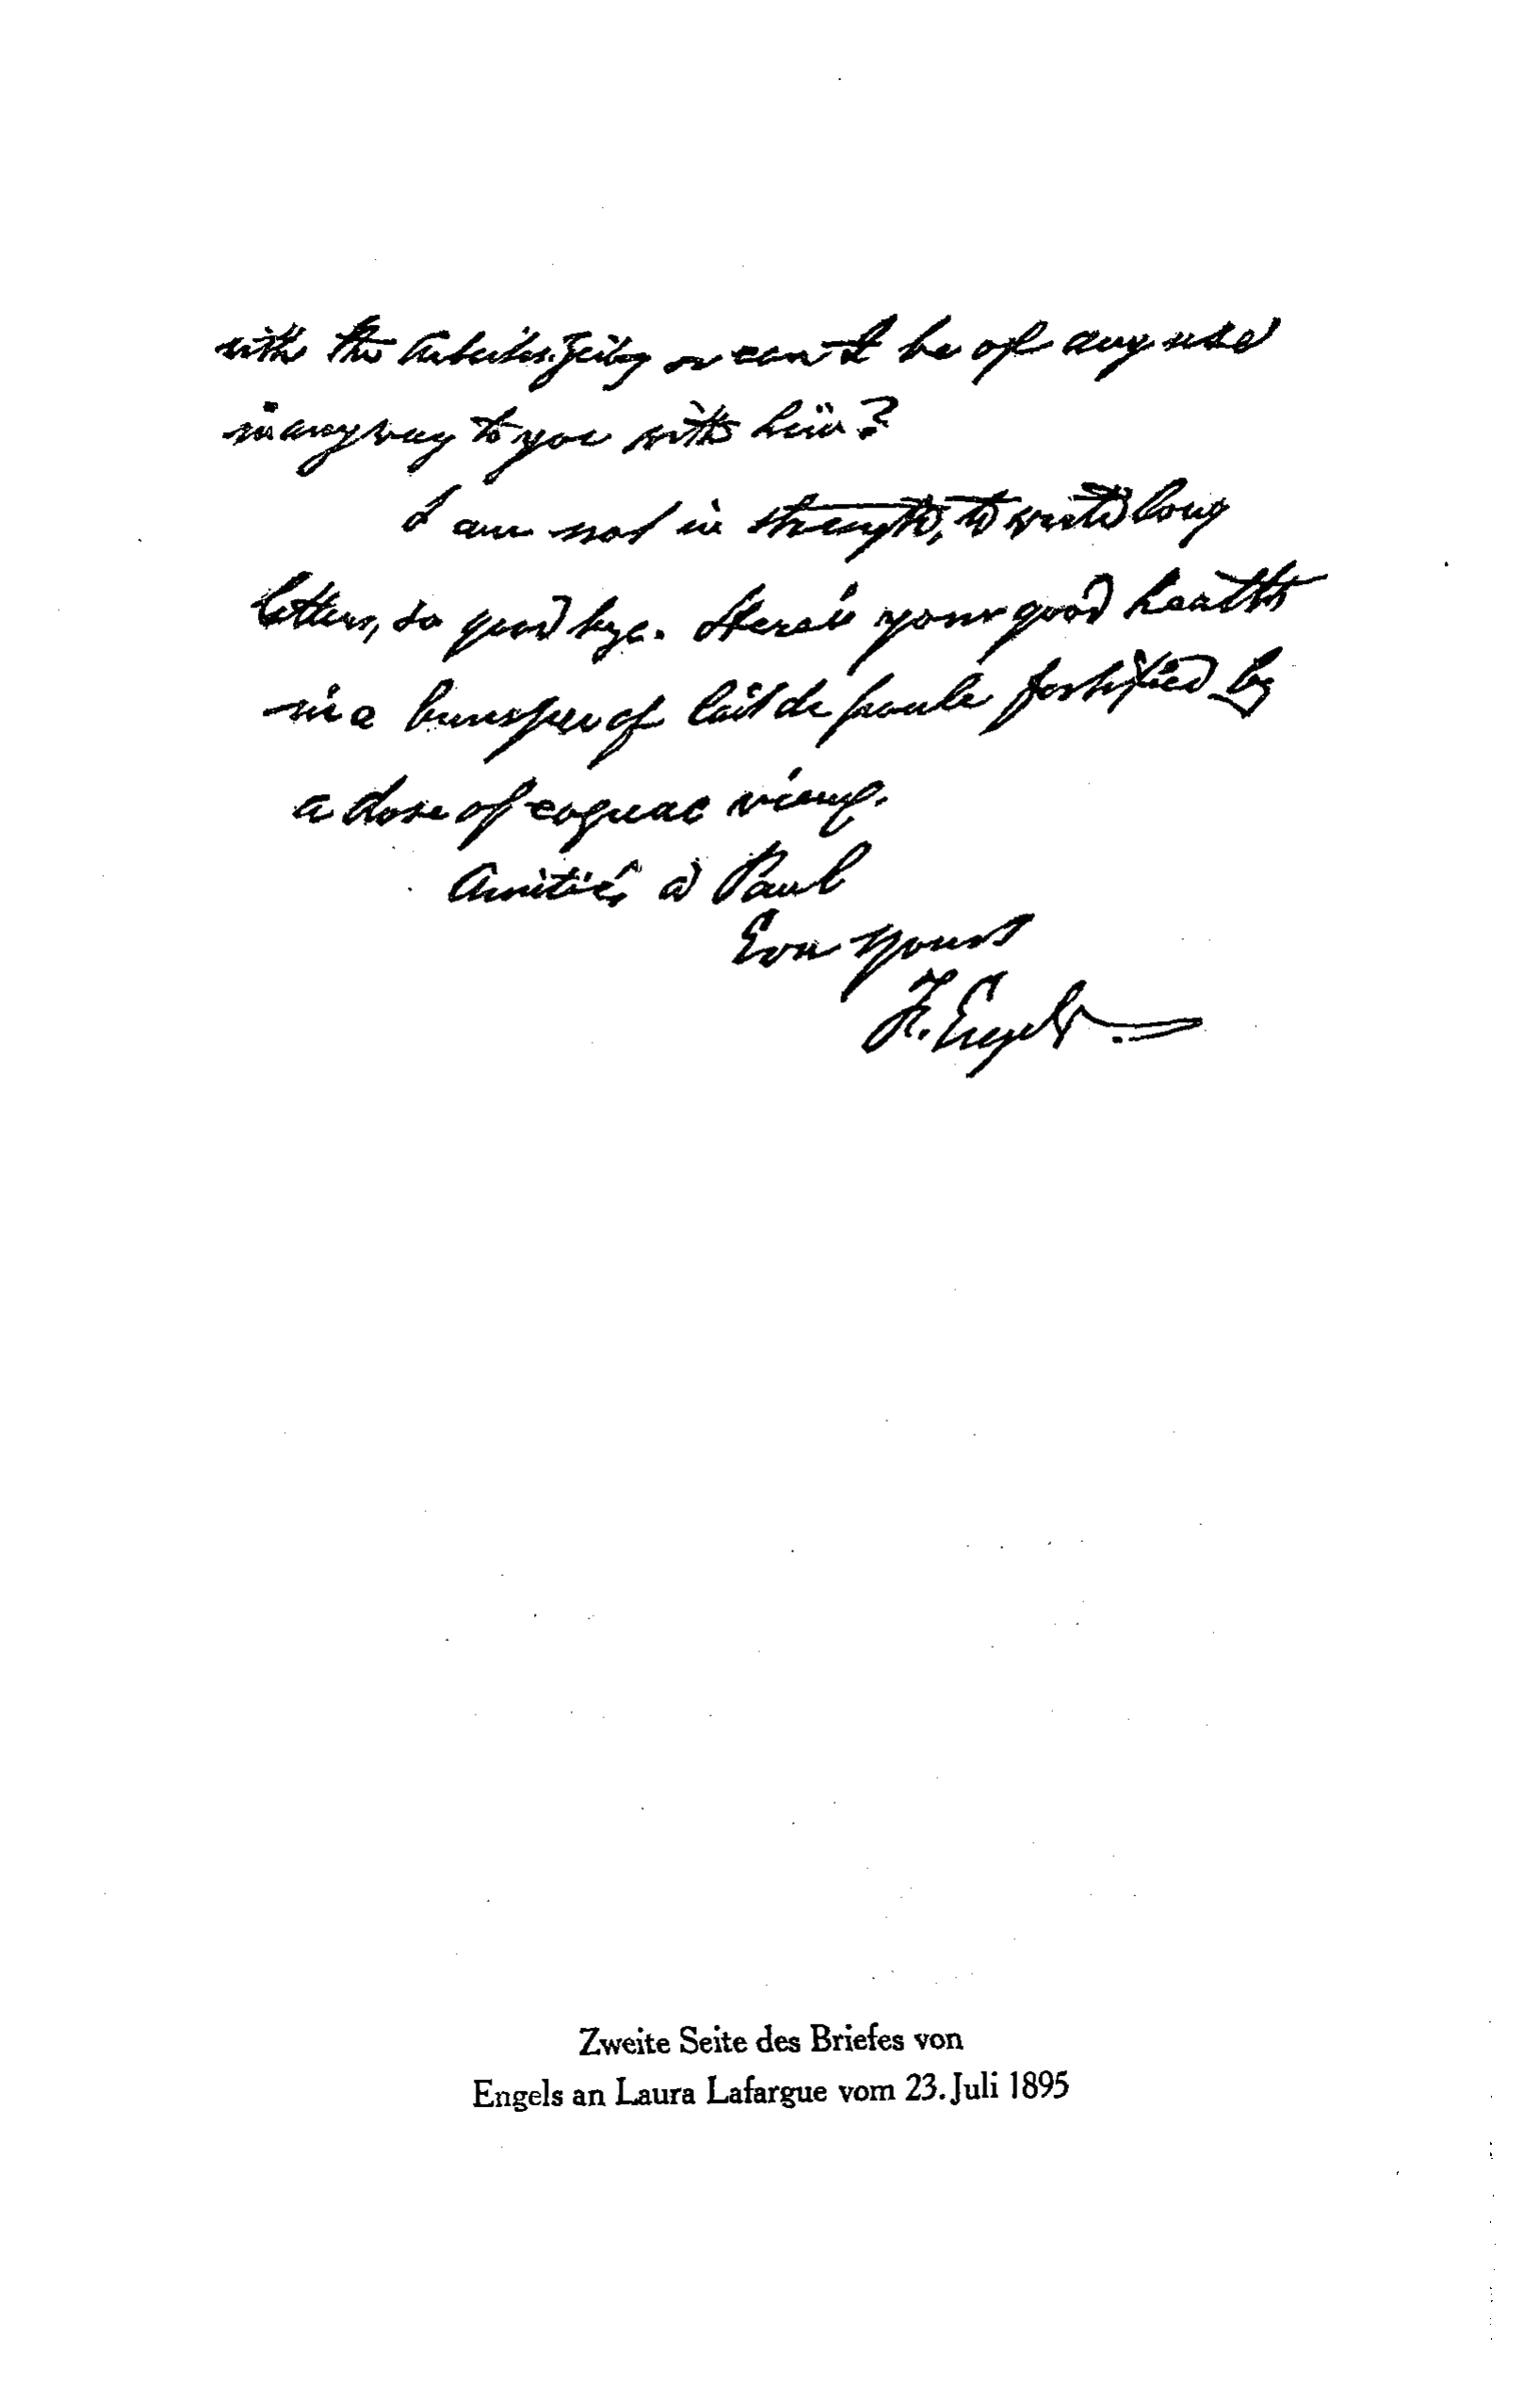 with the Arbeiter-Zeitung or can I be of any use
in any way to you with him?
I am not in strength, to write long
letters, so good bye. Here's your good health
in a bumper of lait de poule fortified by
a dose of cognac vieux.
Amitiés à Paul
Ever yours
F. Engels
Zweite Seite des Briefes von
Engels an Laura Lafargue vom 23. Juli 1895